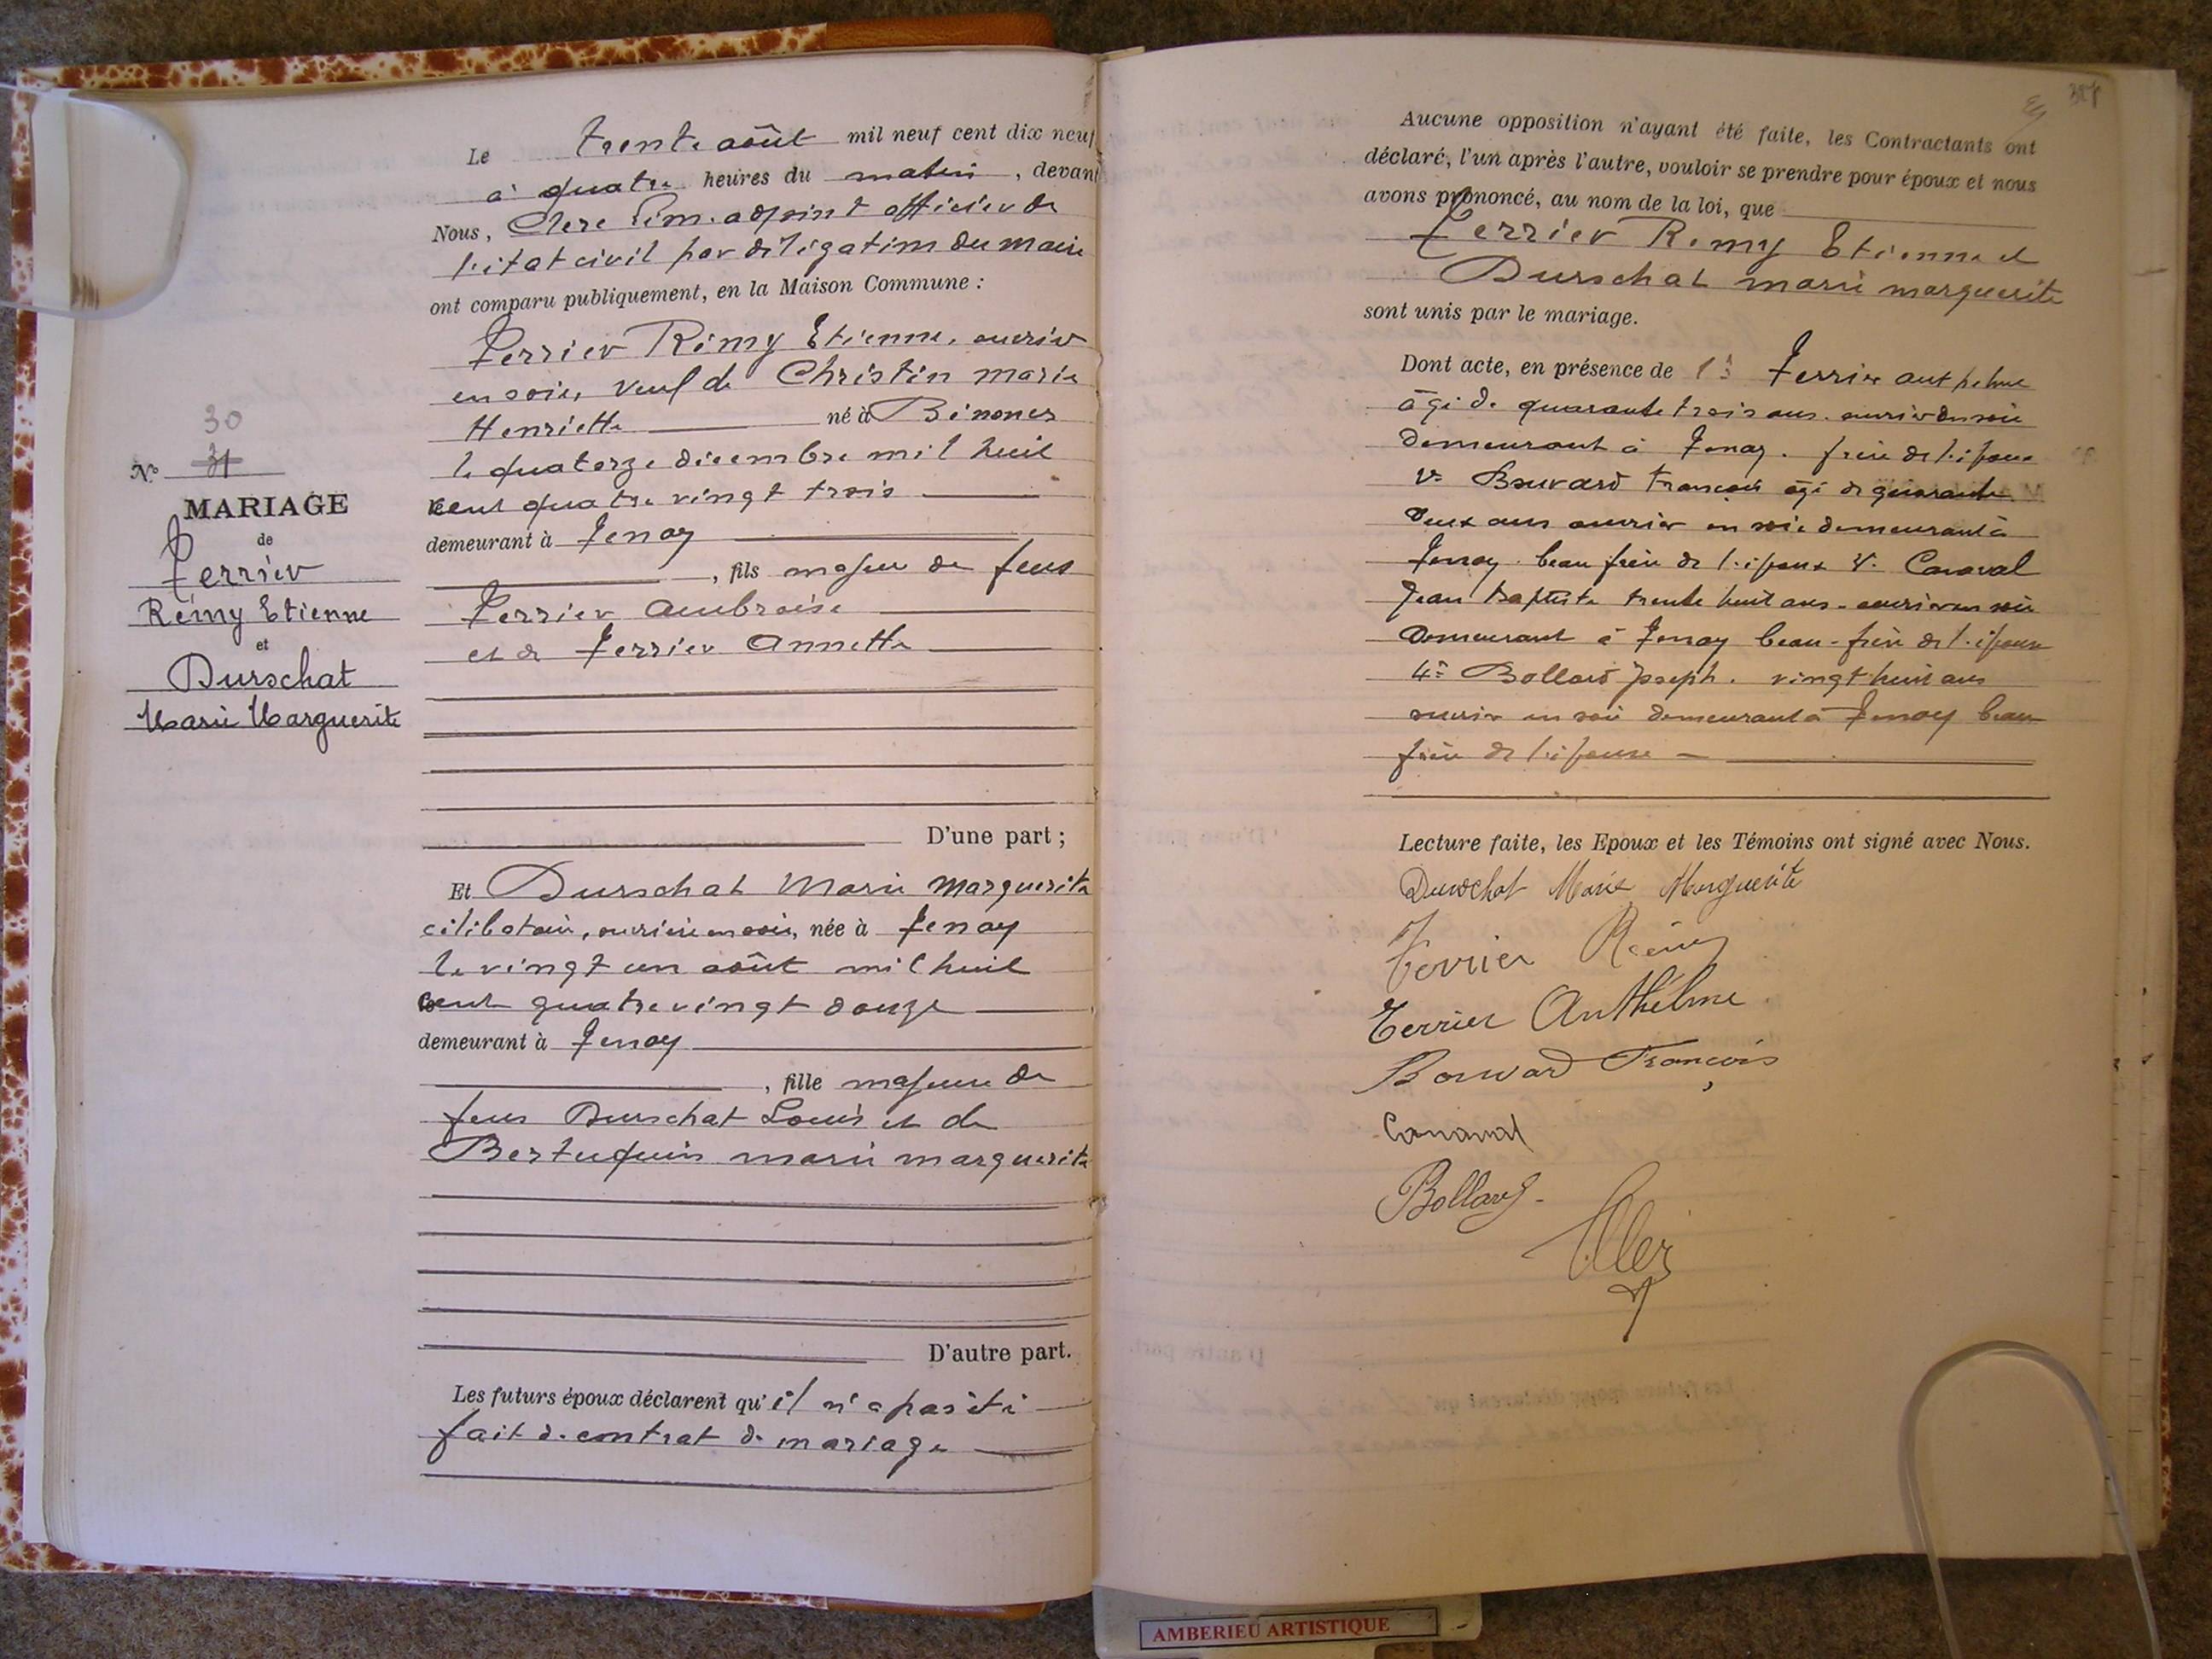 Le trente août mil neuf cent dix neuf
à quatre heures du matin, devant
Nous, Clerc adjoint officier de
l'état civil par délégation du maire
ont comparu publiquement, en la Maison Commune :
Terrier Rémy Etienne, ouvrier
en soie, veuf de Christin marie
Henriette né à Bénonces
le quatorze décembre mil huit
cent quatre vingt trois
demeurant à Tenay
, fils majeur de feus
Terrier Ambroise
et de Terrier Annette
D'une part ;
Et Durschat Marie Marguerite
célibataire, ouvrière en soie, née à Tenay
le vingt un août mil huit
cent quatre vingt douze
demeurant à Tenay
, fille majeure de
feus Durschat Louis et de
marie marguerite
D'autre part.
Les futurs époux déclarent qu'il n'a pas été
fait de contrat de mariage
30
N° 31
MARIAGE
de
Terrier
Rémy Etienne
et
Durschat
Marie Marguerite
Aucune opposition n'ayant été faite, les Contractants ont
déclaré, l'un après l'autre, vouloir se prendre pour époux et nous
avons prononcé, au nom de la loi, que
Terrier Rémy Etienne et
Durschat marie marguerite
sont unis par le mariage.
Dont acte, en présence de 1° Terrier anthelme
âgé de quarante trois ans. ouvrier en soie
demeurant à Tenay. frère de l'époux
Bouvard françois âgé de quarante
deux ans ouvrier en soie demeurant à
Tenay. beau frère de l'époux
Jean baptiste trente huit ans. ouvrier en soie
demeurant à Tenay beau-frère de l'épouse
4° Bollard Joseph. vingt huit ans
ouvrier en soie demeurant à Tenay beau
frère de l'épouse
Lecture faite, les Epoux et les Témoins ont signé avec Nous.
Durschat Marie Marguerite
Terrier Rémy
Terrier Anthelme
Bouvard François
Bollard
AMBERIEU ARTISTIQUE